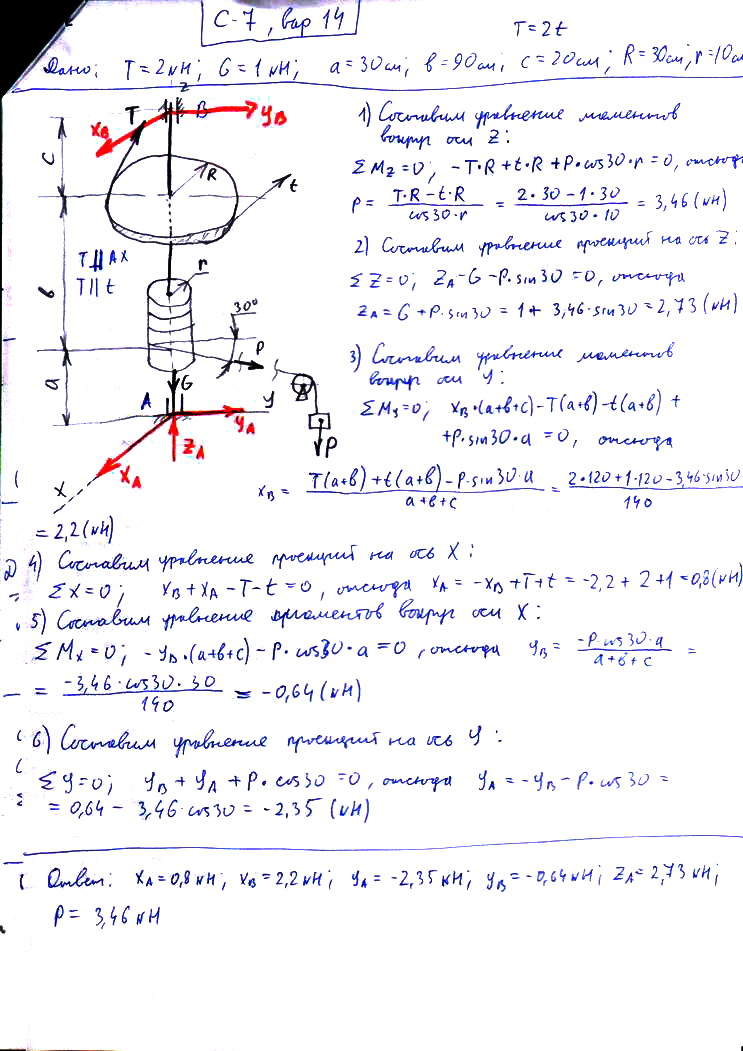 С-7, вар 14
T=2t
Дано: T=2кН; G=1кН; a=30см; в=90см; c=20см; R=30см; r=10см
z
B
T
xB
yB
c
R
t
T∦Ax
T∥t
в
r
30°
P
a
G
A
y
yA
zA
xA
x
P
1) Составим уравнение моментов
вокруг оси Z:
ΣMz=0; -T·R+t·R+P·cos30·r=0, отсюда
P = (T·R-t·R)/(cos30·r) = (2·30-1·30)/(cos30·10) = 3,46(кН)
2) Составим уравнение проекций на ось Z:
ΣZ=0; ZA-G-P·sin30=0, отсюда
ZA=G+P·sin30=1+3,46·sin30=2,73(кН)
3) Составим уравнение моментов
вокруг оси Y:
ΣMy=0; xB·(a+в+c)-T(a+в)-t(a+в)+
+P·sin30·a=0, отсюда
xB = (T(a+в)+t(a+в)-P·sin30·a)/(a+в+c) = (2·120+1·120-3,46·sin30)/140
=2,2(кН)
4) Составим уравнение проекций на ось X:
ΣX=0; xB+xA-T-t=0, отсюда xA=-xB+T+t=-2,2+2+1=0,8(кН)
5) Составим уравнение моментов вокруг оси X:
ΣMx=0; -yB·(a+в+c)-P·cos30·a=0, отсюда yB = (-P·cos30·a)/(a+в+c) =
= (-3,46·cos30·30)/140 = -0,64(кН)
6) Составим уравнение проекций на ось Y:
Σy=0; yB+yA+P·cos30=0, отсюда yA=-yB-P·cos30=
=0,64-3,46·cos30=-2,35(кН)
Ответ: xA=0,8кН; xB=2,2кН; yA=-2,35кН; yB=-0,64кН; ZA=2,73кН;
P=3,46кН